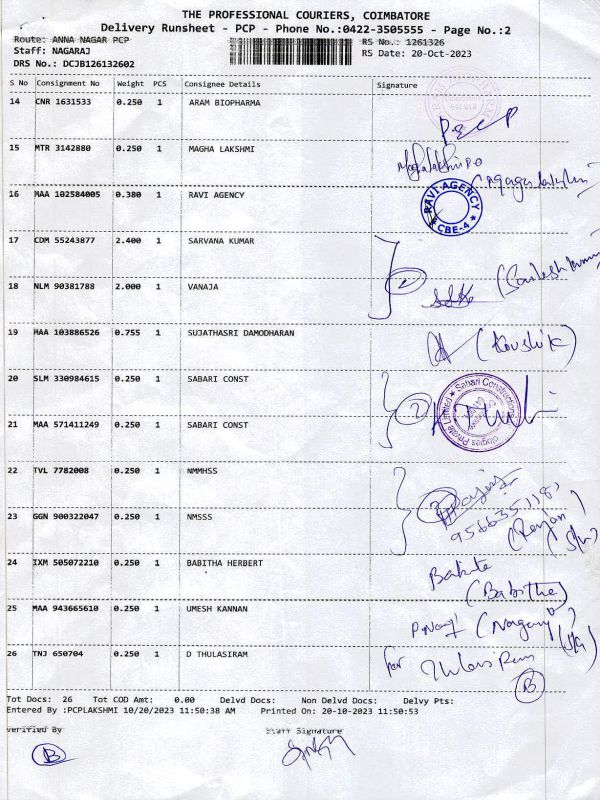 THE PROFESSIONAL COURIERS, COIMBATORE
Delivery Runsheet - PCP - Phone No.:0422-3505555 - Page No.:2
Route: ANNA NAGAR PCP RS No.: 1261326
Staff: NAGARAJ RS Date: 20-Oct-2023
DRS No.: DCJB126132602
S No Consignment No Weight PCS Consignee Details Signature
14 CNR 1631533 0.250 1 ARAM BIOPHARMA
15 MTR 3142880 0.250 1 MAGHA LAKSHMI
16 MAA 102584005 0.380 1 RAVI AGENCY RAVI AGENCY CBE-4
17 CDM 55243877 2.400 1 SARVANA KUMAR
18 NLM 90381788 2.000 1 VANAJA
19 MAA 103886526 0.755 1 SUJATHASRI DAMODHARAN (Koushik)
20 SLM 330984615 0.250 1 SABARI CONST 2 Sabari Constructions Private Limited
21 MAA 571411249 0.250 1 SABARI CONST
22 TVL 7782008 0.250 1 NMMHSS
23 GGN 900322047 0.250 1 NMSSS
24 IXM 505072210 0.250 1 BABITHA HERBERT (Babitha)
25 MAA 943665610 0.250 1 UMESH KANNAN
26 TNJ 650704 0.250 1 D THULASIRAM for Thulasi Ram
B
Tot Docs: 26 Tot COD Amt: 0.00 Delvd Docs: Non Delvd Docs: Delvy Pts:
Entered By :PCPLAKSHMI 10/20/2023 11:50:38 AM Printed On: 20-10-2023 11:50:53
Verified By Staff Signature
B